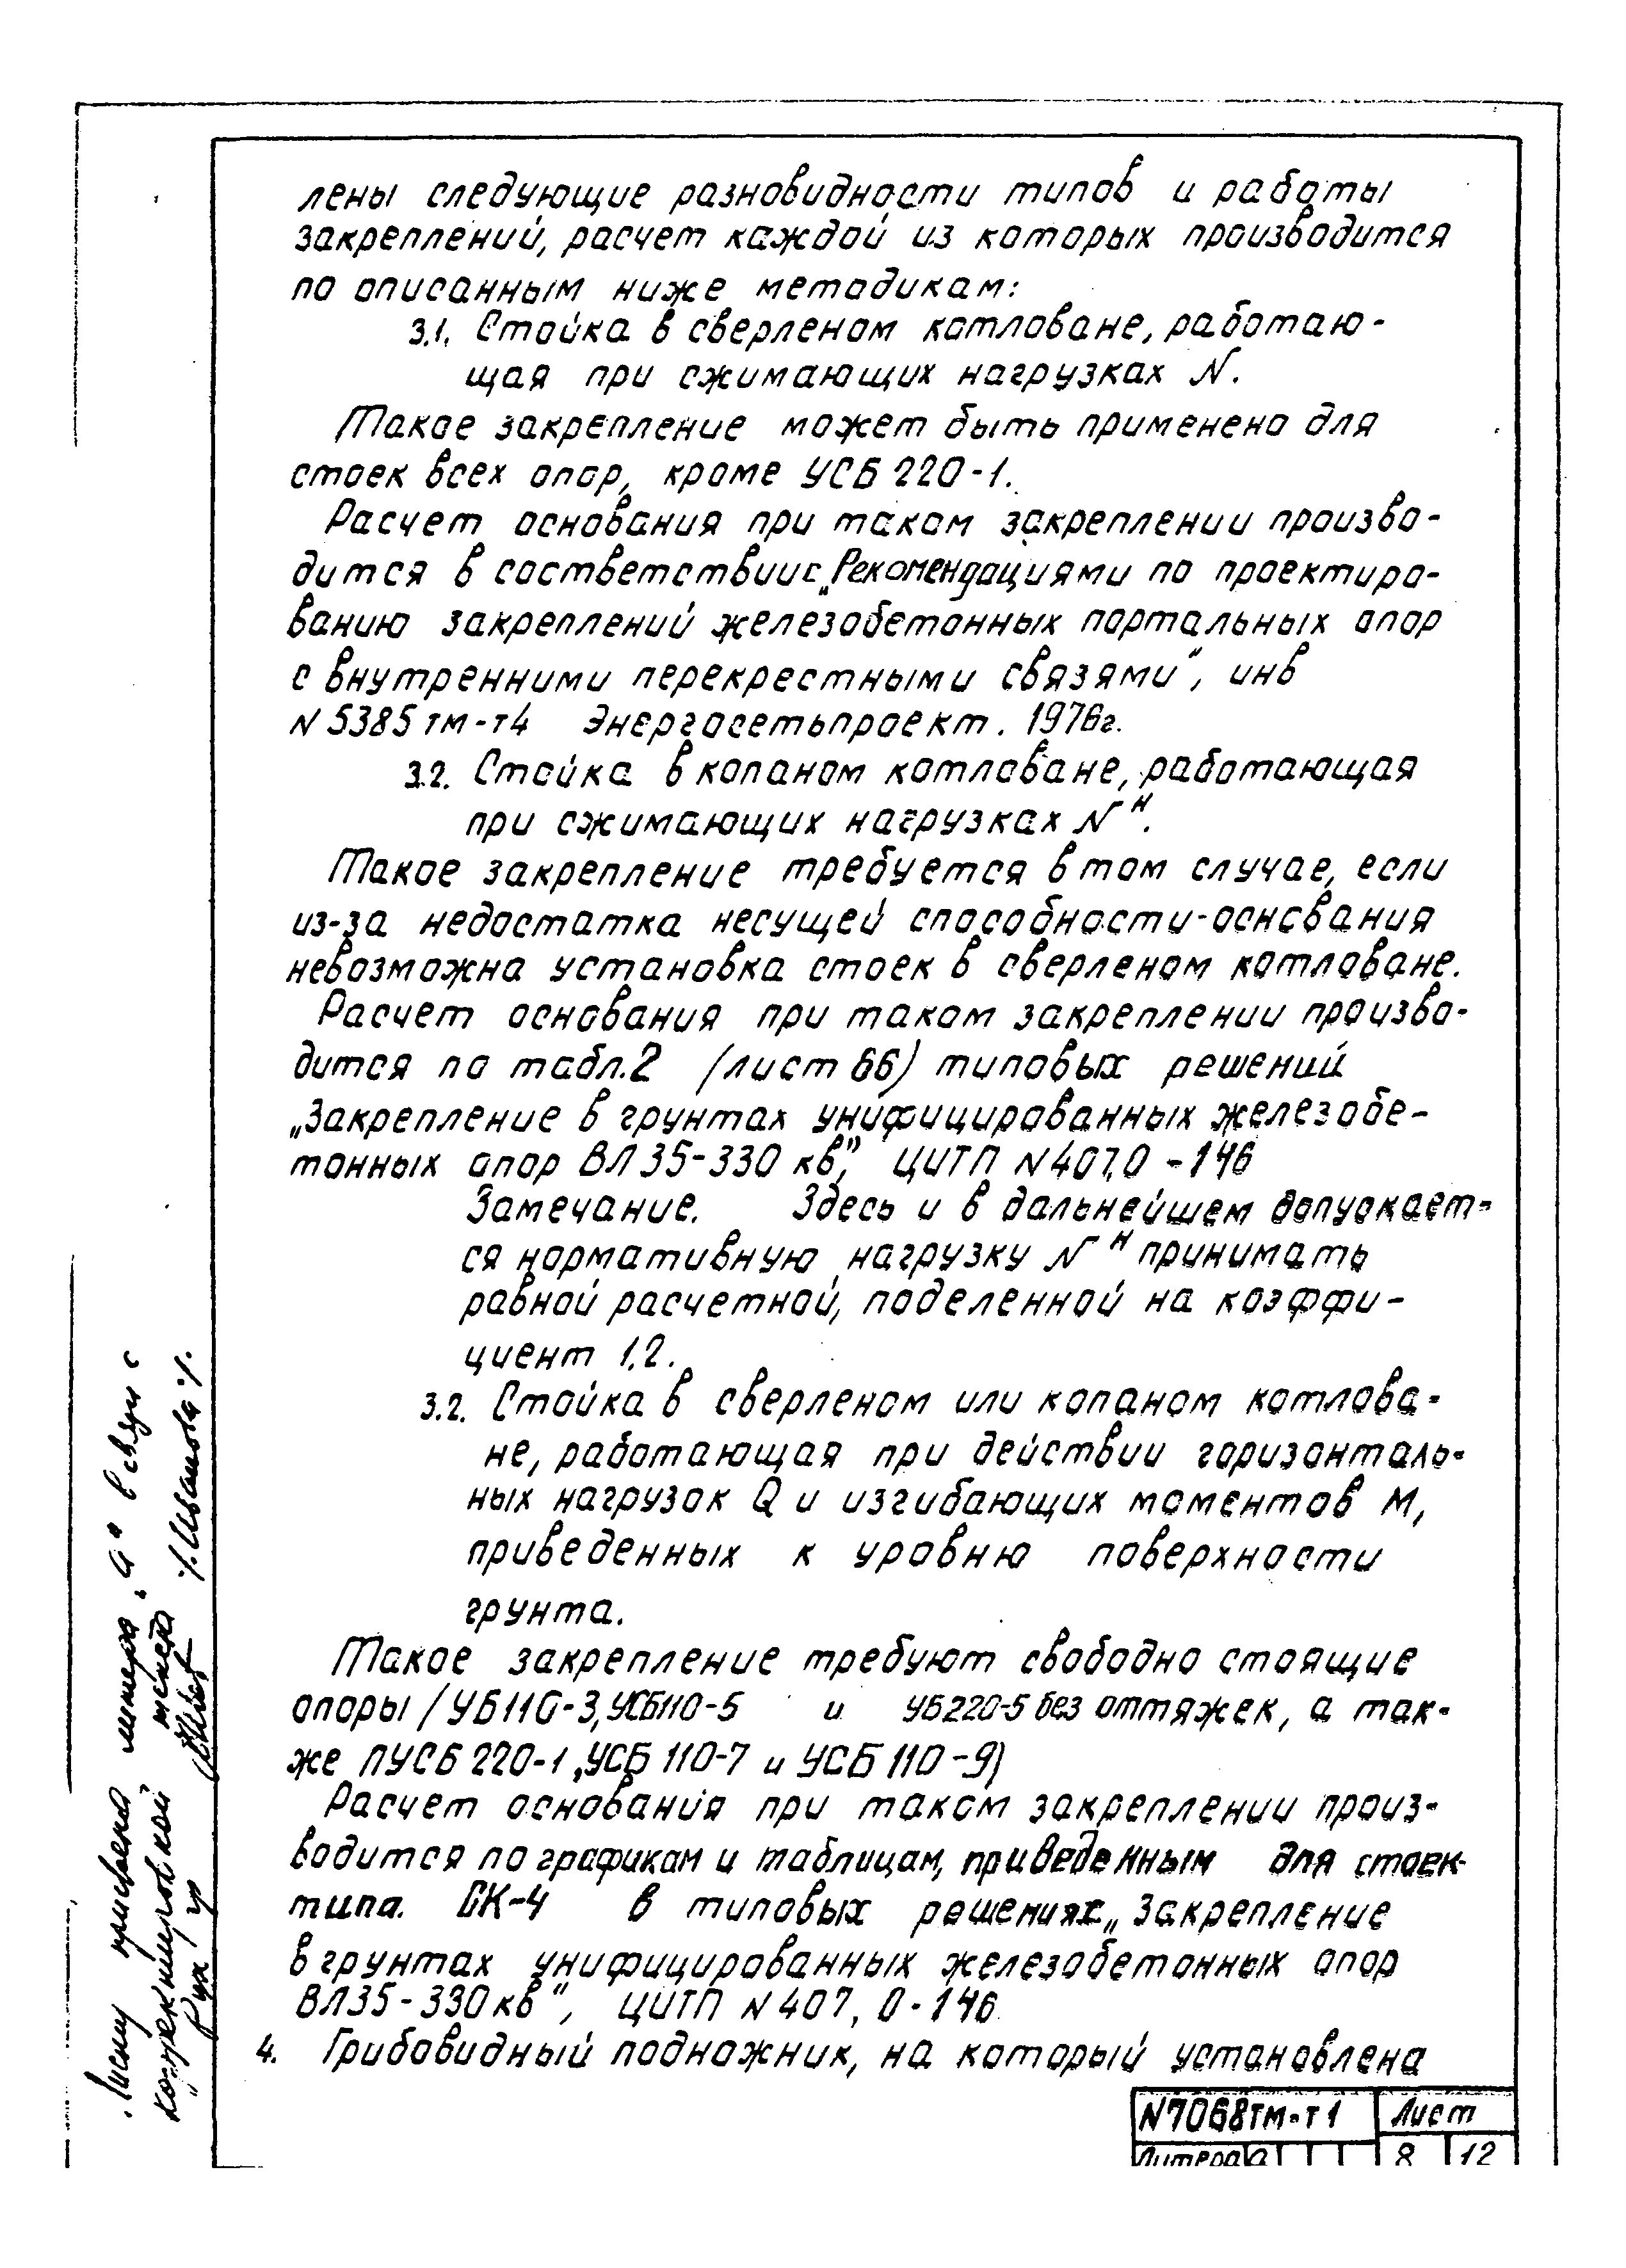 лены следующие разновидности типов и работы
закреплений, расчет каждой из которых производится
по описанным ниже методикам:
3.1. Стойка в сверленом котловане, работаю-
щая при сжимающих нагрузках N.
Такое закрепление может быть применено для
стоек всех опор, кроме УСБ 220-1.
Расчет основания при таком закреплении произво-
дится в соответствии с „Рекомендациями по проектиро-
ванию закреплений железобетонных портальных опор
с внутренними перекрестными связями“, инв
N 5385 тм-т4 Энергосетьпроект. 1976г.
3.2. Стойка в копаном котловане, работающая
при сжимающих нагрузках Nᴴ.
Такое закрепление требуется в том случае, если
из-за недостатка несущей способности-основания
невозможна установка стоек в сверленом котловане.
Расчет основания при таком закреплении произво-
дится по табл.2 (лист 66) типовых решений
„Закрепление в грунтах унифицированных железобе-
тонных опор ВЛ 35-330 кв“, ЦИТП N 407,0-146
Замечание. Здесь и в дальнейшем допускает-
ся нормативную нагрузку Nᴴ принимать
равной расчетной, поделенной на коэффи-
циент 1,2.
3.2. Стойка в сверленом или копаном котлова-
не, работающая при действии горизонталь-
ных нагрузок Q и изгибающих моментов М,
приведенных к уровню поверхности
грунта.
Такое закрепление требуют свободно стоящие
опоры /УБ110-3, УСБ110-5 и УБ220-5 без оттяжек, а так-
же ПУСБ 220-1, УСБ 110-7 и УСБ 110-9)
Расчет основания при таком закреплении произ-
водится по графикам и таблицам, приведенным для стоек
типа. СК-4 в типовых решениях „Закрепление
в грунтах унифицированных железобетонных опор
ВЛ35-330кв“, ЦИТП N 407, 0-146
4. Грибовидный подножник, на который установлена
N7068тм-т1 Лист
Литера а 8 12
Листу присвоена литера „а“ в связи с
корректировкой
Иванова